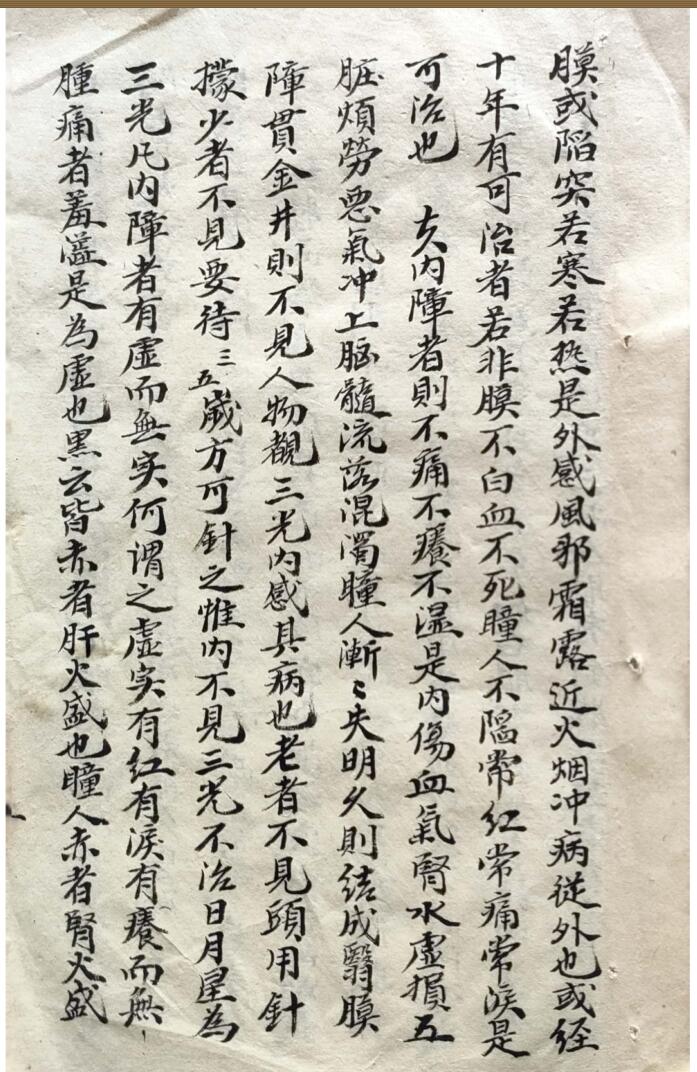 膜或陷突若寒若热是外感風邪霜露近火烟冲病従外也或経
十年有可治者若非膜不白血不死瞳人不陷常红常痛常淚是
可治也 夫内障者則不痛不癢不濕是内傷血氣腎水虚損五
脏煩勞恶氣冲上脑髓流落混濁瞳人漸〻失明久則结成翳膜
障貫金井則不見人物覩三光内感其病也老者不見頭用針
撡少者不見要待三五歲方可針之惟内不見三光不治日月星為
三光凡内障者有虚而無实何谓之虚实有红有淚有癢而無
腫痛者羞澁是為虚也黑云皆赤者肝火盛也瞳人赤者腎火盛